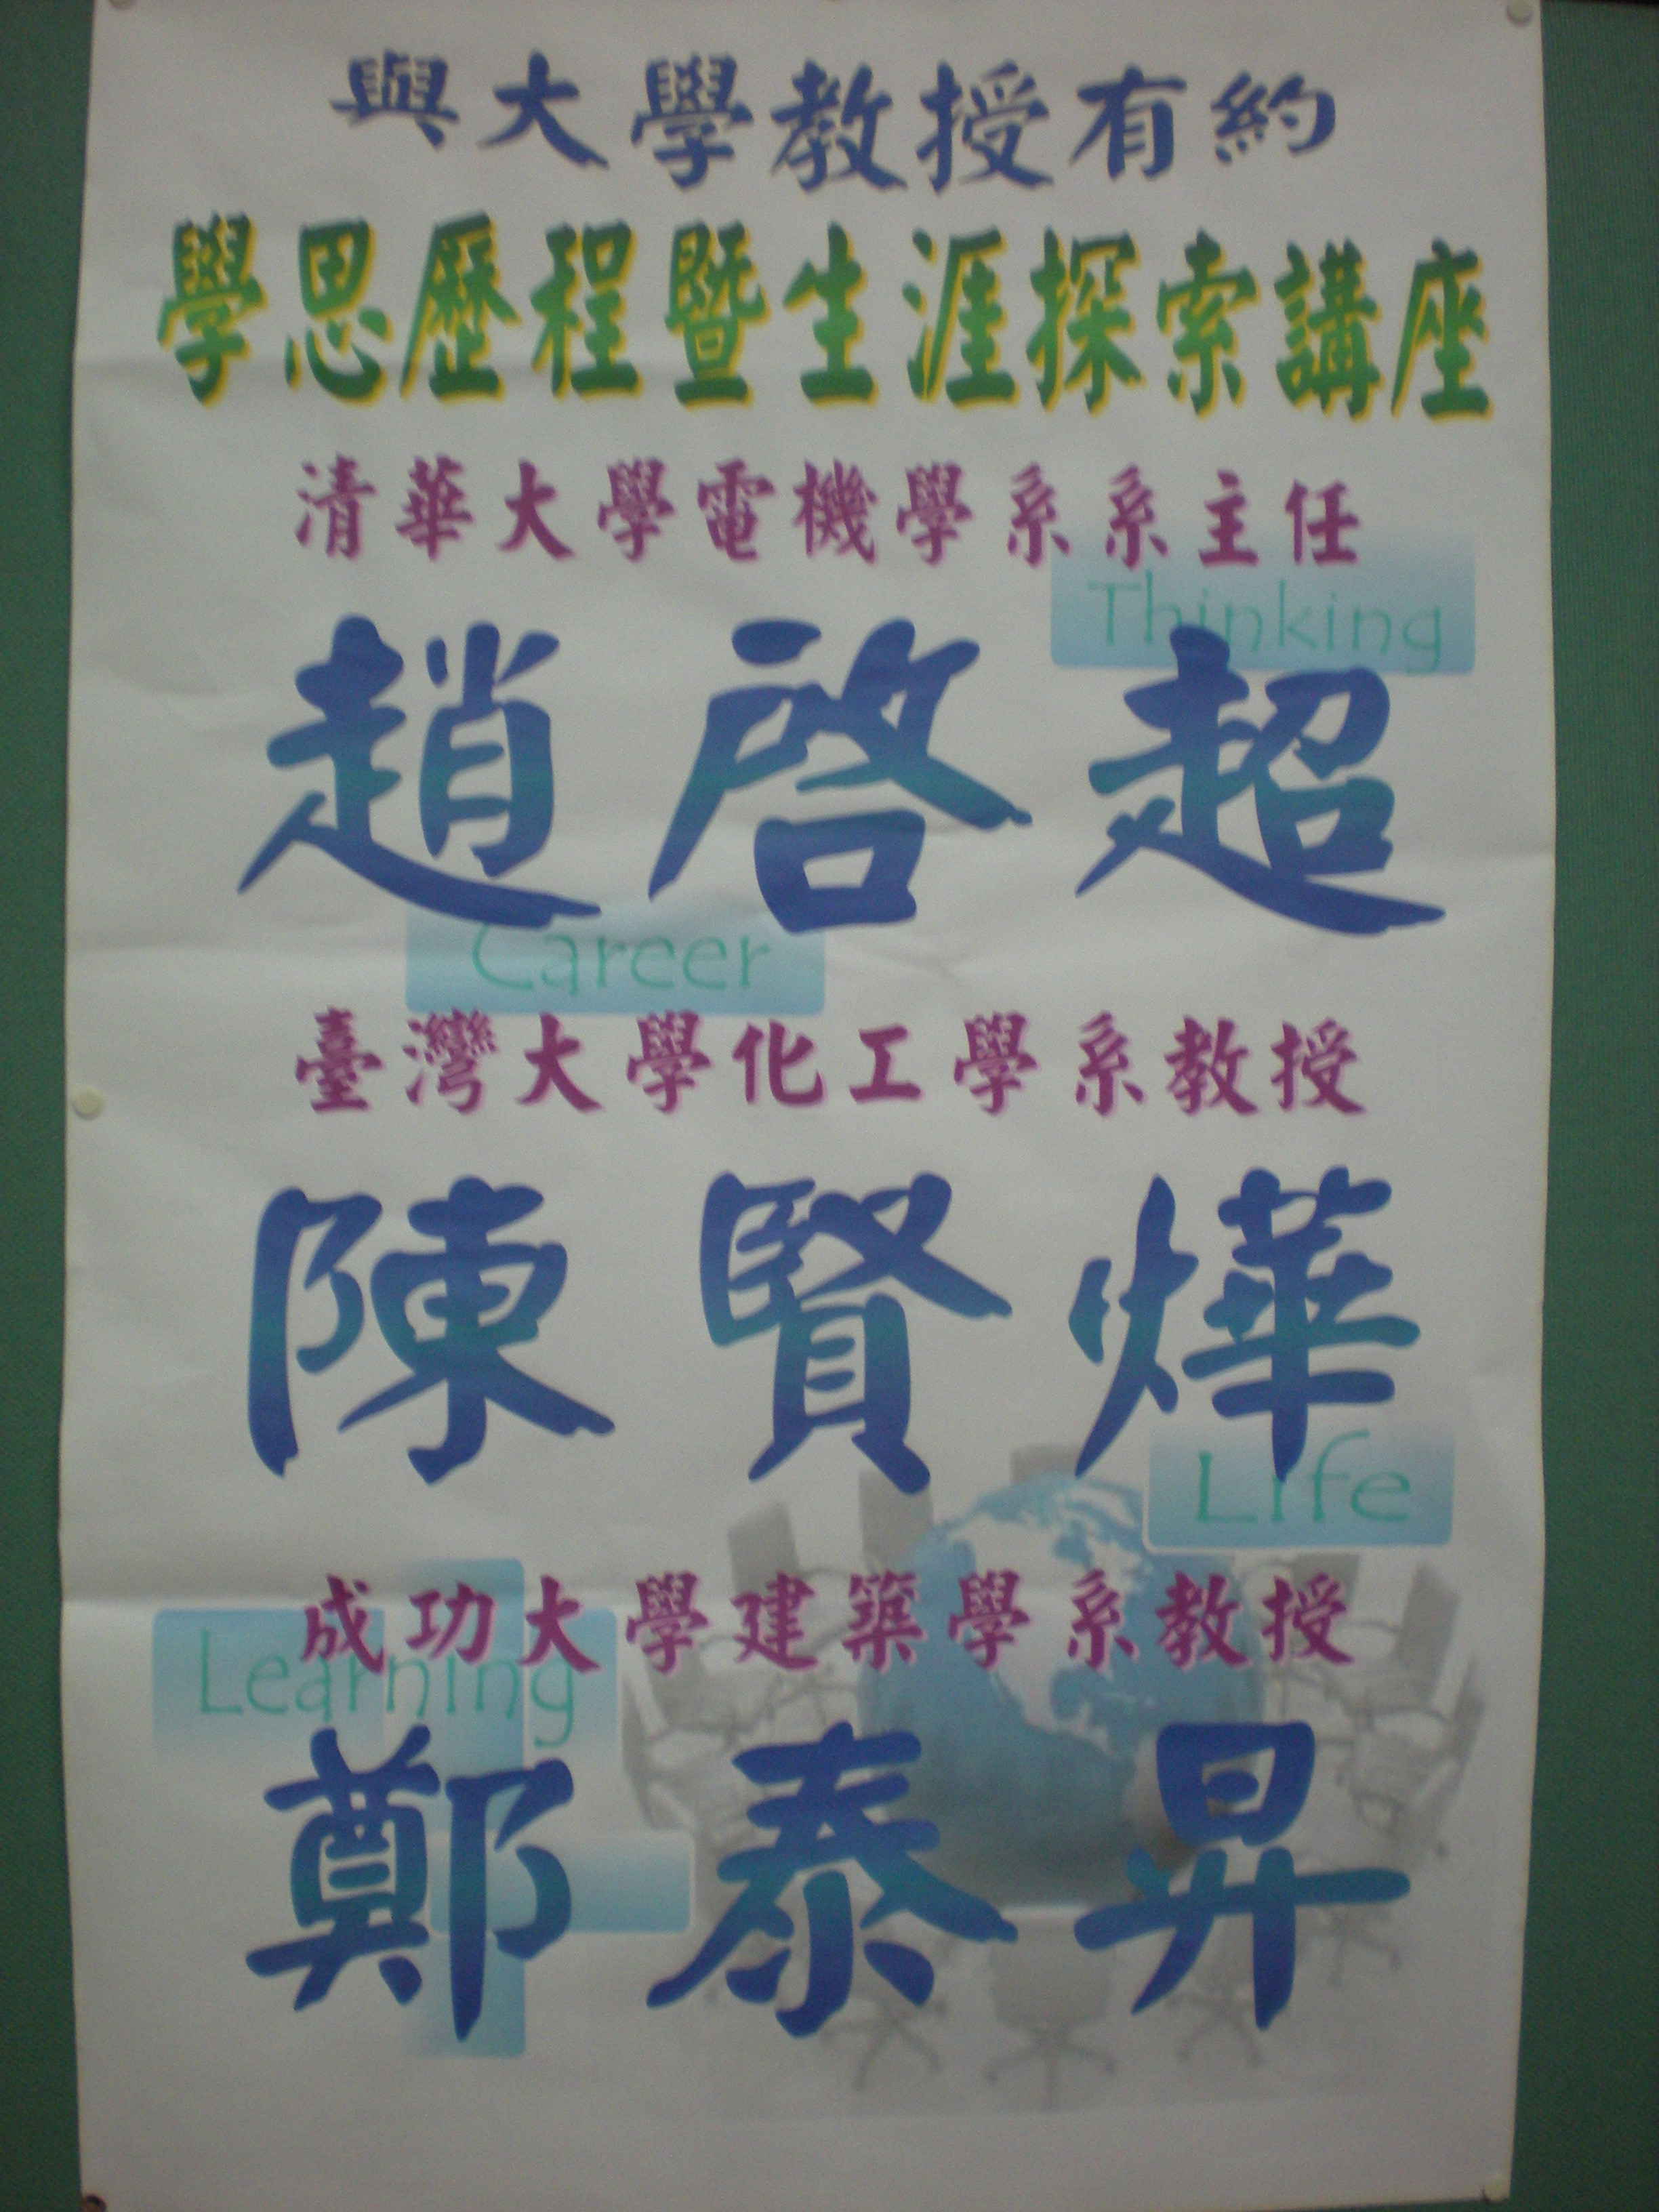 與大學教授有約
學思歷程暨生涯探索講座
清華大學電機學系系主任
Thinking
趙啓超
Career
臺灣大學化工學系教授
陳賢燁
Life
成功大學建築學系教授
Learning
鄭泰昇